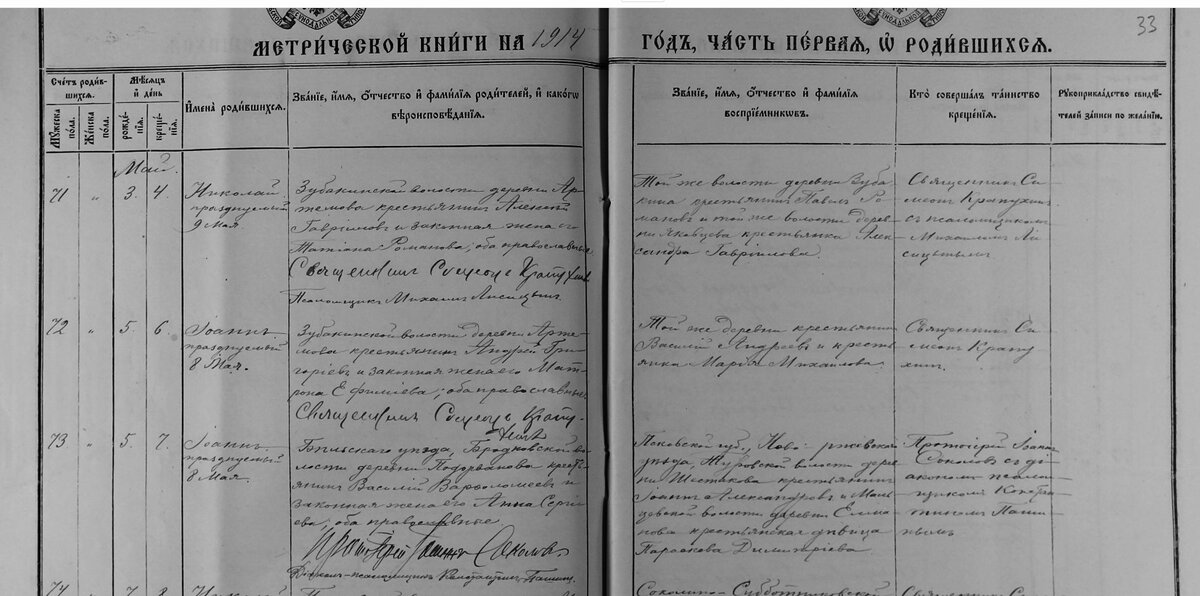 МЕТРИ́ЧЕСКОЙ КНИ́ГИ НА 1914
ГО́ДЪ, ЧА́СТЬ ПЕ́РВАЯ, Ѽ РОДИ́ВШИХСѦ.
33
Сче́тъ роди́в-
шихсѧ.
Мужеска по́ла.
Же́нска по́ла.
Мѣ́сѧцъ
и҆ де́нь
рожде́нїѧ.
креще́нїѧ.
И҆мена̀ роди́вшихсѧ.
Зва́нїе, и҆́мѧ, ѻ҆́тчество и҆ фами́лїѧ роди́телей, и҆ како́гѡ
вѣроисповѣ́данїѧ.
Зва́нїе, и҆́мѧ, ѻ҆́тчество и҆ фами́лїѧ
воспрїе́мникѡвъ.
Кто̀ соверша́лъ та́инство
креще́нїѧ.
Рꙋкоприкла́дство свидѣ́-
телей за́писи по жела́нїю.
Май.
71 " 3. 4.
Николай
празднуемый
9 Мая.
Зубакинской волости деревни Ар-
темова крестьянинъ Алексій
Гавріиловъ и законная жена его
Татіана Романова; оба православные
Священникъ Симеонъ Крапухинъ
Псаломщикъ Михаилъ Лисицынъ.
Той же волости деревни Зуба-
кина крестьянинъ Павелъ Ро-
мановъ и той же волости дерев-
ни Яковцева крестьянка Алек-
сандра Гавріилова.
Священникъ Си-
меонъ Крапухинъ
съ псаломщикомъ
Михаиломъ Ли-
сицынымъ.
72 " 5. 6.
Іоаннъ
празднуемый
8 Мая.
Зубакинской волости деревни Арте-
мова крестьянинъ Андрей Гри-
горіевъ и законная жена его Мат-
рона Ефиміева; оба православные
Священникъ Симеонъ Крапу-
хинъ
Той же деревни крестьянинъ
Василій Андреевъ и кресть-
янка Марія Михаилова.
Священникъ Си-
меонъ Крапу-
хинъ.
73 " 5. 7.
Іоаннъ
празднуемый
8 Мая.
Бѣльскаго уѣзда, Бродковской во-
лости деревни крест-
янинъ Василій Варѳоломеевъ и
законная жена его Анна Сергі-
ева; оба православные.
Протоіерей Іоаннъ Соколовъ.
Діаконъ-псаломщикъ Константинъ
Псковской губ., Ново-ржевскаго
уѣзда, Туровской волости дерев-
ни Шестакова крестьянинъ
Іоаннъ Александровъ и
волости деревни
крестьянская дѣвица
Параскева Димитріева.
Протоіерей Іоаннъ
Соколовъ съ ді-
акономъ псалом-
щикомъ Констан-
тиномъ
74 " 7. 8.